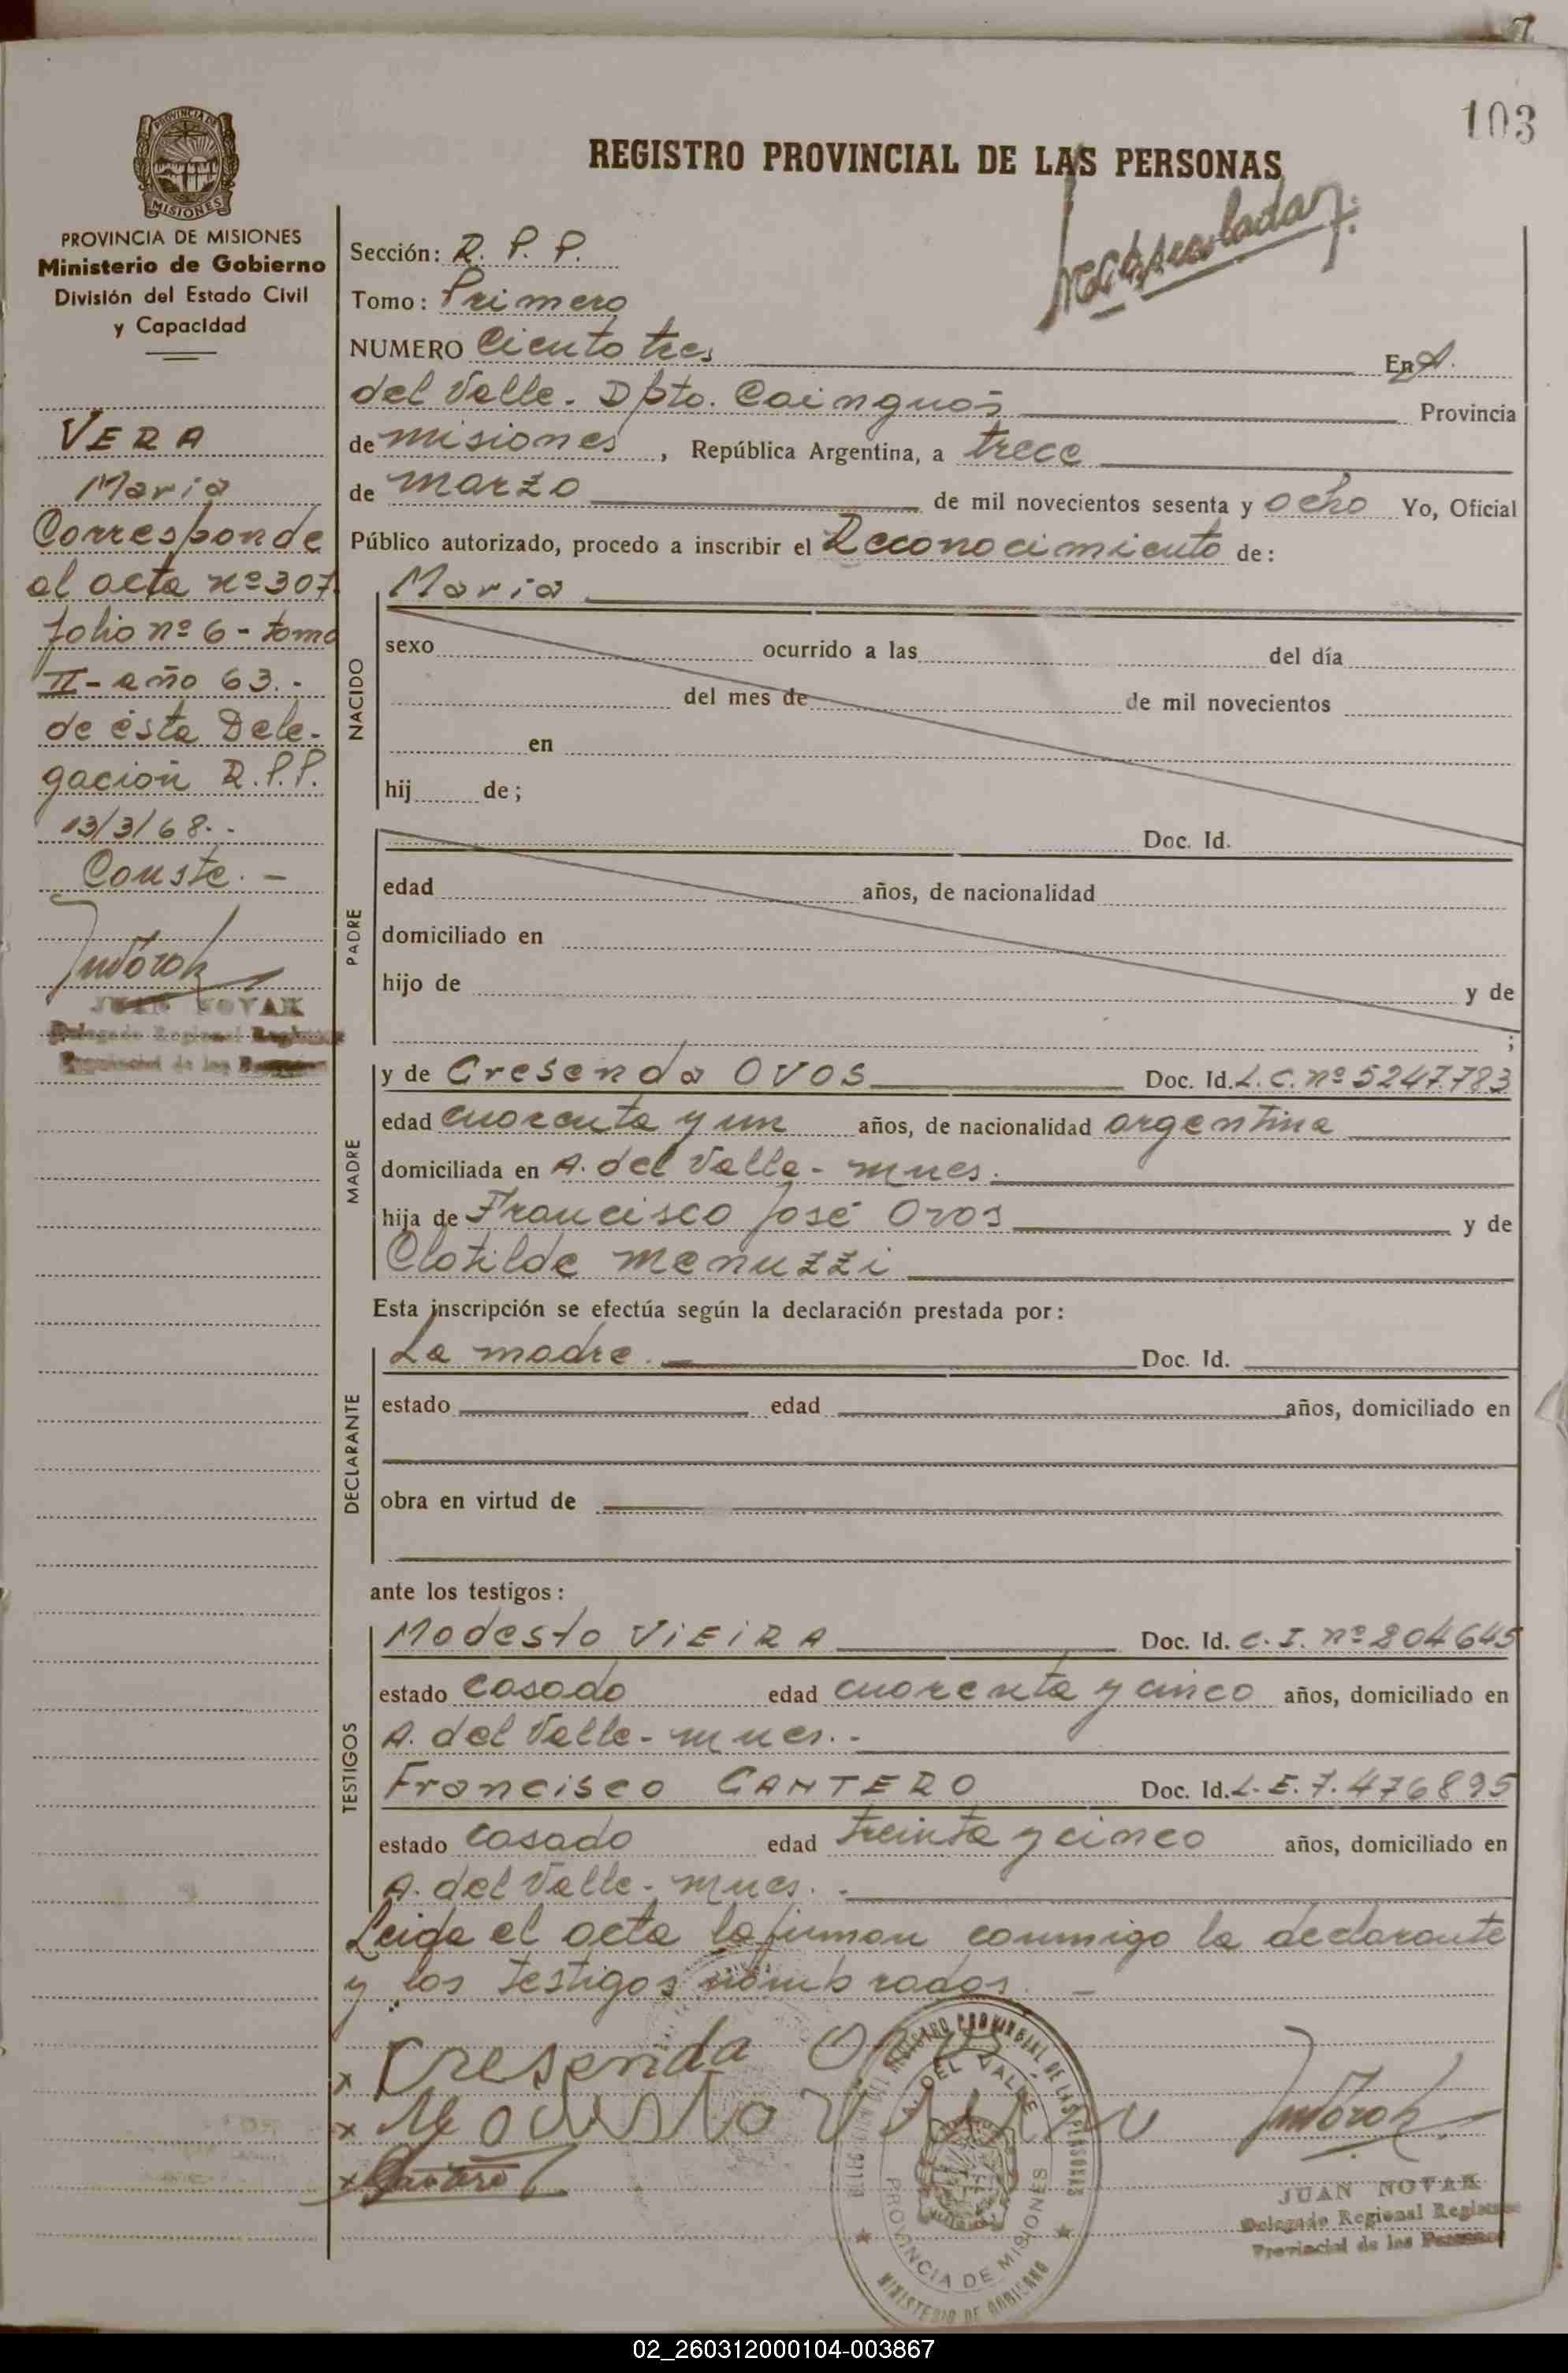 103
REGISTRO PROVINCIAL DE LAS PERSONAS
PROVINCIA DE
MISIONES
PROVINCIA DE MISIONES
Ministerio de Gobierno
División del Estado Civil
y Capacidad
VERA
Maria
Corresponde
al acta nº 307
folio nº 6 - tomo
II - año 63. -
de ésta Dele-
gación R.P.P.
13/3/68. -
Conste. -
JUAN NOVAK
Delegado Regional Registro
Provincial de las Personas
Sección: R. P. P.
Tomo: Primero
NUMERO Ciento tres En A.
del Valle. Dpto. Cainguás Provincia
de misiones, República Argentina, a trece
de marzo de mil novecientos sesenta y ocho Yo, Oficial
Público autorizado, procedo a inscribir el Reconocimiento de:
NACIDO
Maria
sexo ocurrido a las del día
del mes de de mil novecientos
en
hij de;
PADRE
Doc. Id.
edad años, de nacionalidad
domiciliado en
hijo de y de
;
MADRE
y de Cresenda OVOS Doc. Id. L. C. nº 5247.783
edad cuarenta y un años, de nacionalidad argentina
domiciliada en A. del Valle - mnes.
hija de Francisco José Ovos y de
Clotilde Menuzzi
Esta inscripción se efectúa según la declaración prestada por:
DECLARANTE
La madre. Doc. Id.
estado edad años, domiciliado en
obra en virtud de
ante los testigos:
TESTIGOS
Modesto VIEIRA Doc. Id. C. I. nº 204645
estado casado edad cuarenta y cinco años, domiciliado en
A. del Valle - mnes. -
Francisco CANTERO Doc. Id. L. E. 7.476895
estado casado edad treinta y cinco años, domiciliado en
A. del Valle - mnes. -
Leida el acta la firman conmigo la declarante
y los testigos nombrados. -
x Cresenda Ovos
x Modesto Vieira
x Cantero
REGISTRO PROVINCIAL DE LAS PERSONAS
A. DEL VALLE
PROVINCIA DE MISIONES
MINISTERIO DE GOBIERNO
JUAN NOVAK
Delegado Regional Registro
Provincial de las Personas
02_260312000104-003867